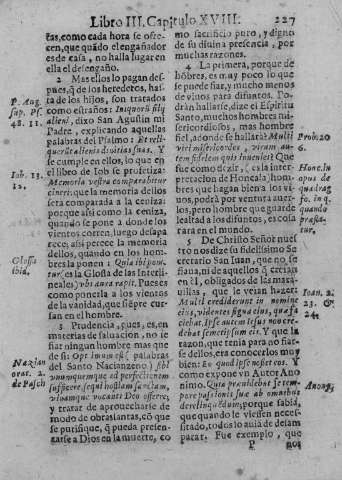 Libro III. Capitulo XVIII. 227
tas, como cada hora se ofre-
cen, que quãdo el engañador
es de casa, no halla lugar en
ella el desengaño.
2 Mas ellos lo pagan des-
pues, q̃ de los herederos, has-
ta de los hijos, son tratados
como estraños: Iniquorũ filij
alieni, dixo San Agustin mi
Padre, explicando aquellas
palabras del Psalmo: Et reli-
querũt alienis divitias suas. Y
se cumple en ellos, lo que en
el libro de Iob se profetiza:
Memoria vestra comparabitur
cineri: que la memoria dellos
será comparada a la ceniza:
porque assi como la ceniza,
quando se pone a donde los
vientos corren, luego desapa
rece; assi perece la memoria
dellos, quando en los hom-
bres la ponen: Quia ibi ponũ-
tur; es la Glossa de las Interli-
neales; vbi aura rapit. Pueses
como ponerla a los vientos
de la vanidad, que siẽpre cur-
san en el hombre.
3 Prudencia, pues, es, en
materias de saluacion, no ie
fiar ningun hombre mas que
de si: Optimum est (palabras
del Santo Nacianzeno) sibi
vnumquemque ad perfectionem
sufficere, sequi nostlam sanctam,
vivamque vocanti Deo offerre;
y tratar de aprouecharse de
modo de obras santas, cõ que
se purifique, q̃ pueda presen-
tarse a Dios en la muerte, co
P. Aug.
sup. Ps.
48. 11.
Iob. 13.
12.
Glossa
ibid.
Nazian
orat. 2.
de Pasch
mo sacrificio puro, y digno
de su diuina presencia, por
muchas razones.
4 La primera, porque de
hõbres, es muy poco lo que
se puede fiar, y mucho menos
de vinos para difuntos. Po-
drán hallarse, dize el Espiritu
Santo, muchos hombres mi
sericordiosos, mas hombre
fiel, adonde se hallará? Multi
viri misericordes, virum au-
tem fidelem quis inueniet? Que
fue como dezir, (es la inter-
pretacion de Honcala) hom-
bres que hagan bien a los vi-
vos, podrá por ventura auer-
los, pero hombre que guarde
lealtad a los difuntos, es cosa
rara en el mundo.
5 De Christo Señor nues
tro nos dize su fidelissimo Se
cretario San Iuan, que no se
fiana, ni de aquellos q̃ creian
en èl, obligados de las mara-
uillas, que le veian hazer:
Multi crediderunt in nomine
eius, videntes signa eius, quæ fa
ciebat. Ipse autem Iesus non cre-
debat semetipsum eis. Y que la
razon, que tenia para no fiar-
se dellos, era conocerlos muy
bien: Eo quod ipse nosset eos. Y
es como expone vn Autor Ano
nimo. Quia præuidebat se tem-
pore passionis suæ ab omnibus
derelinquẽdum, porque sabia,
que quando le viessen neces-
sitado, todos le auia de desam
parar. Fue exemplo, que
P nos
Prob. 20
6.
Honc. in
opus de
quadrag
fo. in q.
quando
præsta-
tur,
Ioan. 2.
23. &
24.
Anony.